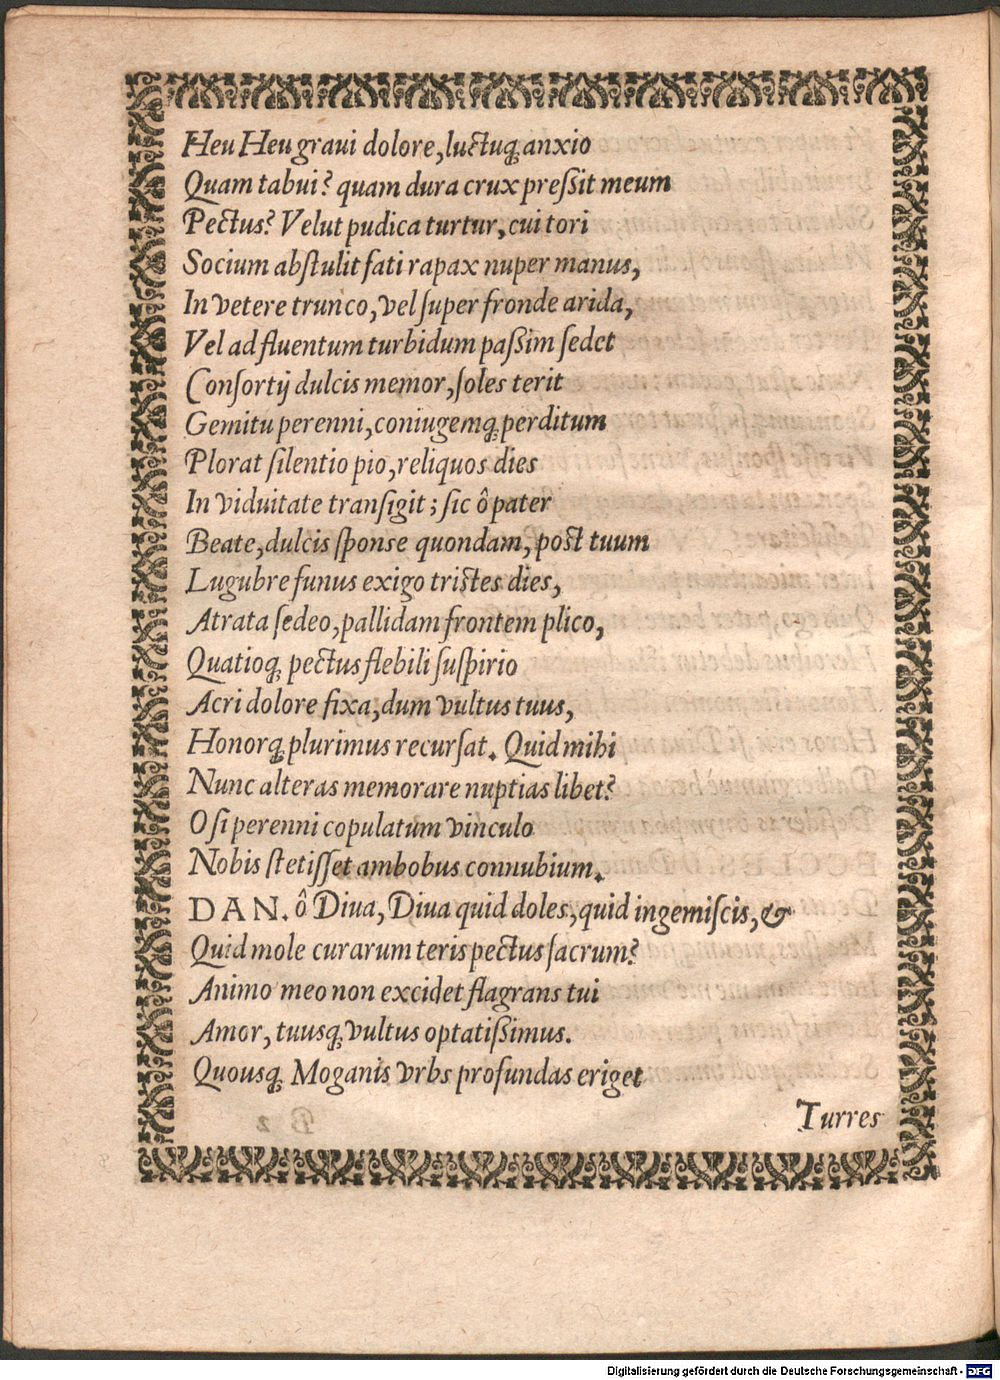 Heu Heu graui dolore, luctuq́ꝫ anxio
Quam tabui? quam dura crux preſsit meum
Pectus? Velut pudica turtur, cui tori
Socium abſtulit fati rapax nuper manus,
In vetere trunco, vel ſuper fronde arida,
Vel ad fluentum turbidum paſsim ſedet
Conſortij dulcis memor, ſoles terit
Gemitu perenni, coniugemq́ꝫ perditum
Plorat ſilentio pio, reliquos dies
In viduitate tranſigit; ſic ô pater
Beate, dulcis ſponse quondam, post tuum
Lugubre funus exigo tristes dies,
Atrata ſedeo, pallidam frontem plico,
Quatioq́ꝫ pectus flebili ſuſpirio
Acri dolore fixa, dum vultus tuus,
Honorq́ꝫ plurimus recurſat. Quid mihi
Nunc alteras memorare nuptias libet?
O ſi perenni copulatum vinculo
Nobis ſtetiſſet ambobus connubium.
DAN. ô Diua, Diua quid doles, quid ingemiſcis, &
Quid mole curarum teris pectus ſacrum?
Animo meo non excidet flagrans tui
Amor, tuusq́ꝫ vultus optatiſsimus.
Quousq́ꝫ Moganis vrbs profundas eriget
Turres
Digitalisierung gefördert durch die Deutsche Forschungsgemeinschaft - DFG